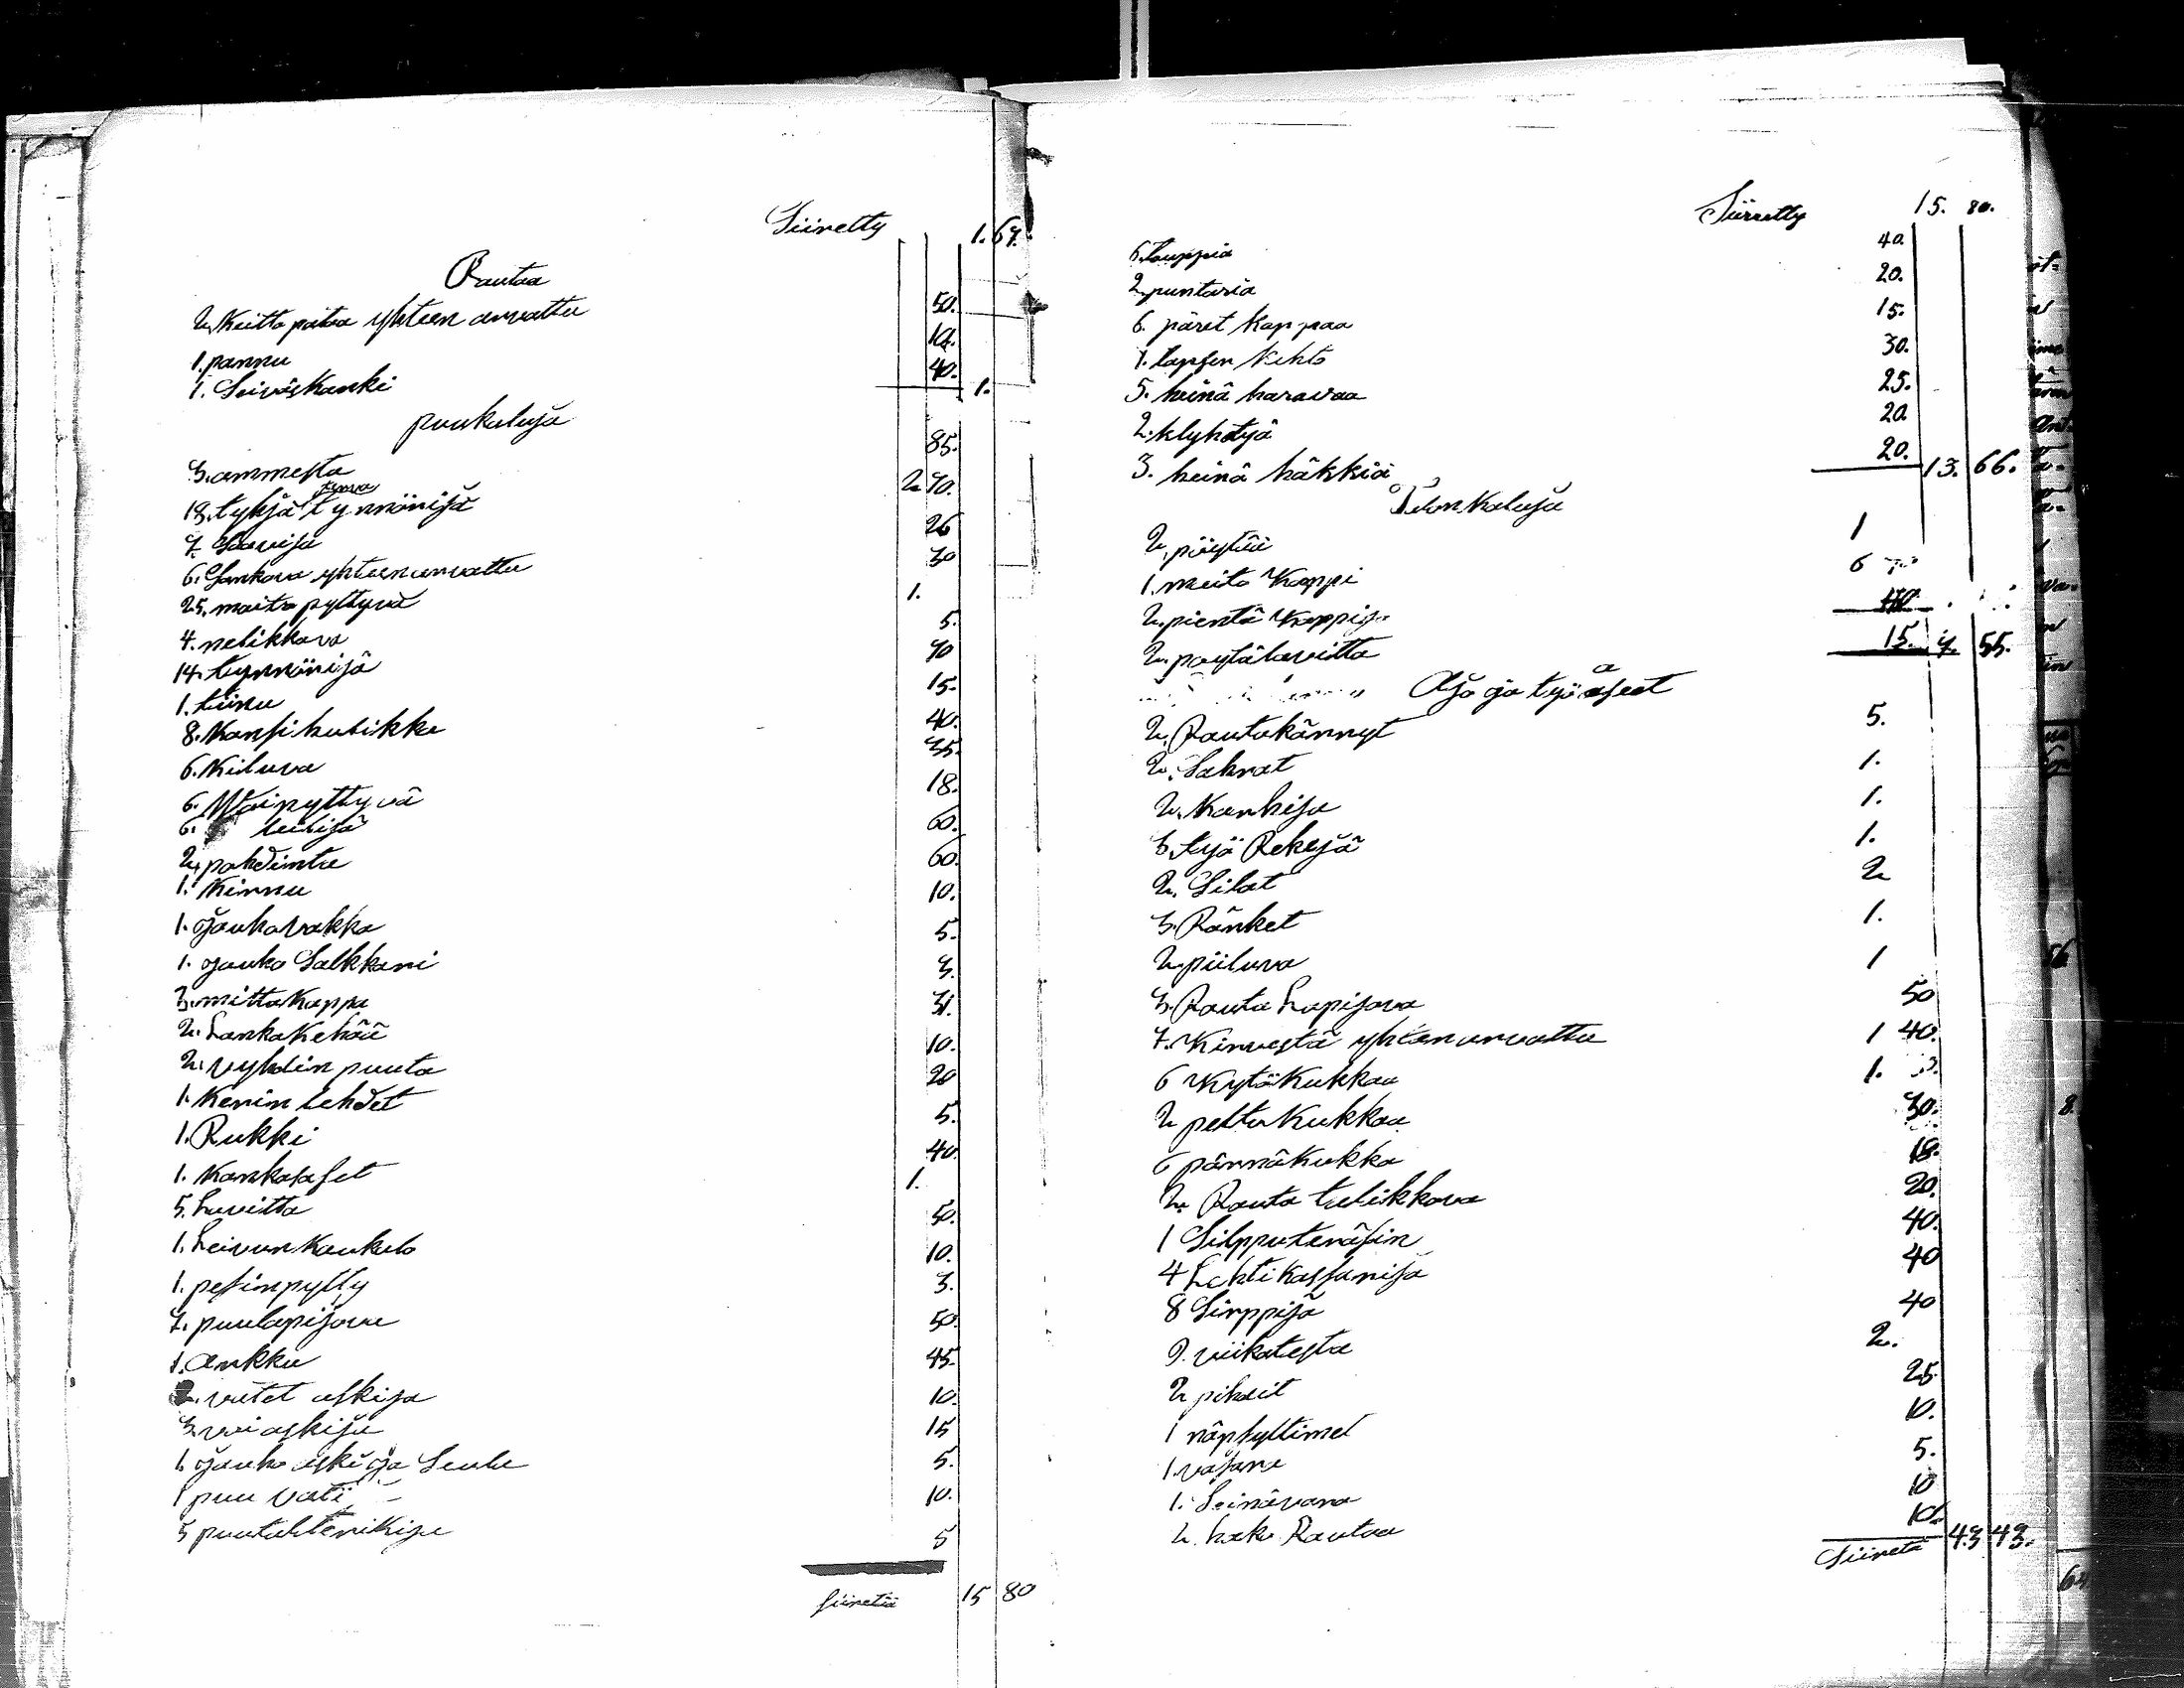 Siiretty 1. 64.
Rautaa
2. Keitto pataa yhteen arvattu 50.
1. pannu 10.
1. Seiväskanki 40. 1.
puukaluja
3. ammesta 85.
18. tyhjä terva tynnörijä 2 70.
7. Saavija 26
6. Sankova yhteen arvattu 30
25. maito pyttyvä 1.
4. nelikkova 5.
14. tynnörijä 70
1. tiinu 15.
8. Kansi kulikku 40.
6. Kiluva 35.
6. Woi pyttyvä 18.
6. leilijä 60.
2. pohdinta 60.
1. Kirnu 10.
1. jauhovakka 5.
1. jauho Salkkari 3.
3. mitta Kappa 31.
2. Lanka Kehää 10.
2. vyhdin puuta 20
1. Kerin lehdet 5.
1. Rukki 40.
1. Kankasaset 1.
5. Lavitta 50.
1. Leivun Kaukalo 10.
1. pesin pytty 3.
7. puulapijova 50.
1. Ankku 45.
2. vatet askija 10.
3. voi askija 15
1. jauho aski ja Seula 5.
1 puu vati 10.
5 puutuhterikija 5
Siiretää 15 80
Siirretty 15. 80.
6. Louppia 40.
2. puntaria 20.
6. päret Kappaa 15.
1. lapsen Kehto 30.
5. heinä haravaa 25.
2. klyhtyä 20.
3. heinä häkkiä 20. 13. 66.
Talon Kaluja
2. pöytää 1
1. meito Kaappi 6
2. pientä Kaappija
2. poytälavitta 15. 7. 55.
Ajo ja työ aseet
2. Rautakännyt 5.
2. Sahrat 1.
2. Karhija 1.
3. työ Rekejä 1.
2. Silat 2
3. Ränket 1.
2. piiluva 1
3. Rauta Lapijova 50
7. Kirvestä yhteen arvattu 1 40.
6 Kytö Kukkaa 1.
2 pelto Kukkaa 30.
6 pärnä Kukka 18.
2. Rauta talikkova 20.
1 Silpputeräsin 40.
4 Lehti Kassarija 40
8 Sirppijä 40
9. viikatesta 2.
2 pihdit 25
1 näpsyttimet 10.
1. vasara 5.
1. Seinävara 10
2. hako Rautaa 10.
Siiretä 43 43.